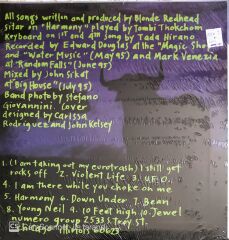 All songs written and produced by Blonde Redhead
sitar on "Harmony" played by Tombi Thokchom
Keyboard on 1st and 4th song by Tada Hirano
Recorded by Edward Douglas at the "Magic Shop"
and "Water Music" (May 95) and Mark Venezia
at "Random Falls" (June 95)
Mixed by John Siket
at Big House (July 95)
Band photo by Stefano
Giovannini. Cover
designed by Carissa
Rodriguez and John Kelsey
1. (I am taking out my eurotrash) I still get
rocks off 2. Violent Life 3. U.F.O.
4. I am there while you choke on me
5. Harmony 6. Down Under 7. Bean
8. Young Neil 9. 10 Feet high 10. Jewel
numero group 2533 S troy St.
Chicago Illinois 60623